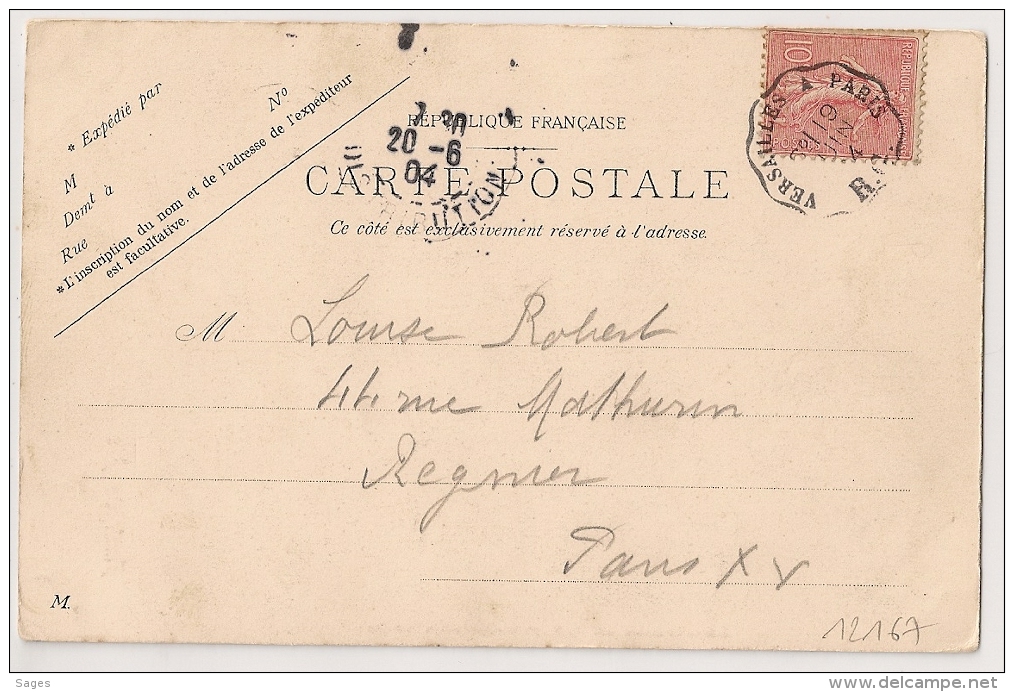 * Expédié par
M
Nº
Demt à
Rue
*L'inscription du nom et de l'adresse de l'expéditeur
est facultative.
7 30
20 -6
04
DISTRIBUTION
RÉPUBLIQUE FRANÇAISE
CARTE POSTALE
Ce côté est exclusivement réservé à l'adresse.
10
REPUBLIQUE
VERSAILLES A PARIS
19
JUIN
M Louise Robert
44 rue Mathurin
Regnier
Paris XV
M.
12167
Sages
delcampe.net